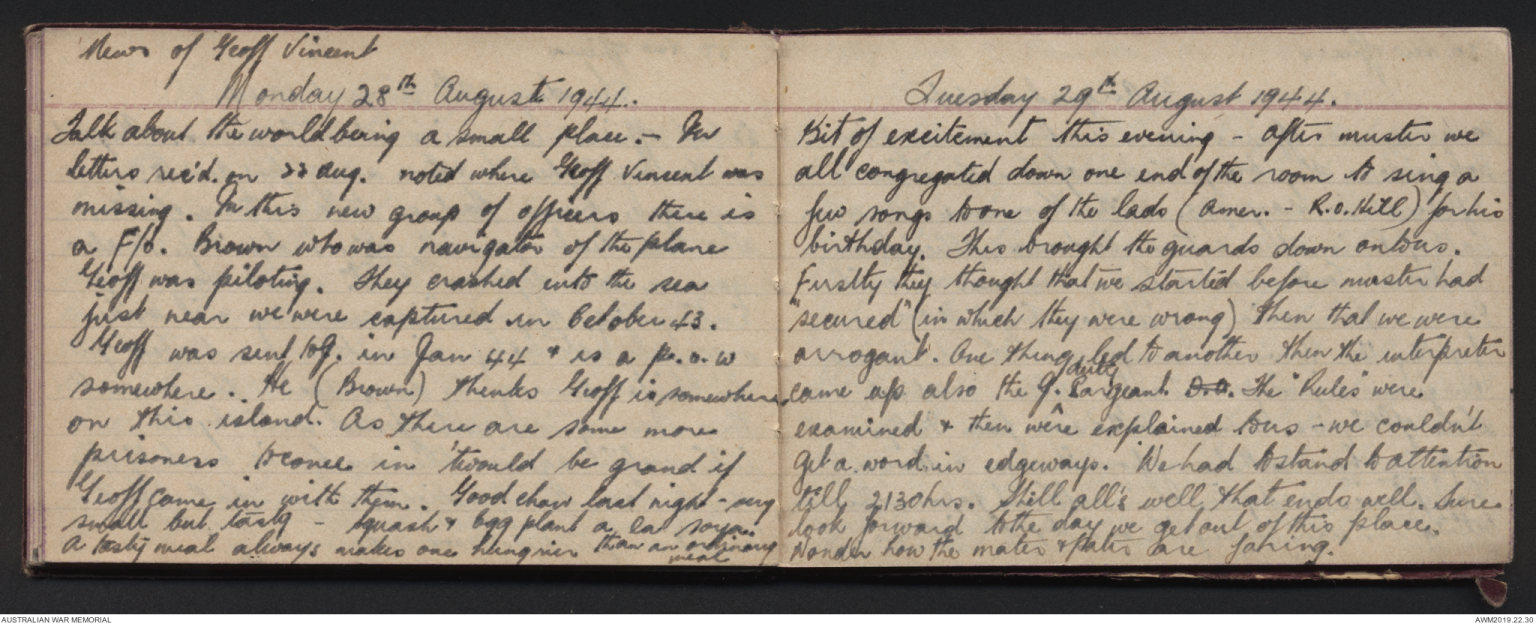 News of Geoff Vincent
Monday 28th August 1944.
Talk about the world being a small place. - In
letters rec'd. on 23 Aug. noted where Geoff Vincent was
missing. In this new group of officers there is
a F/o. Brown who was navigator of the plane
Geoff was piloting. They crashed into the sea
just near we were captured in October 43.
Geoff was sent to J. in Jan 44 & is a p.o.w
somewhere. He (Brown) thinks Geoff is somewhere
on this island. As there are some more
prisoners to come in 'twould be grand if
Geoff came in with them. Good chow last night - very
small but tasty - squash & egg plant a la soya.
A tasty meal always makes one hungrier than an ordinary
meal
Tuesday 29th August 1944.
Bit of excitement this evening - after muster we
all congregated down one end of the room to sing a
few songs to one of the lads (Amer. - R.O. Hill) for his
birthday. This brought the guards down on to us.
Firstly they thought that we started before muster had
"secured" (in which they were wrong) then that we were
arrogant. One thing led to another & then the interpreter
came up also the J. Sargeant. The "Rules" were
examined & then were explained to us - we couldn't
get a word in edgeways. We had to stand to attention
till 2130hrs. Still all's well that ends well. Sure
look forward to the day we get out of this place.
Wonder how the mater & pater are faring.
AUSTRALIAN WAR MEMORIAL
AWM2019.22.30